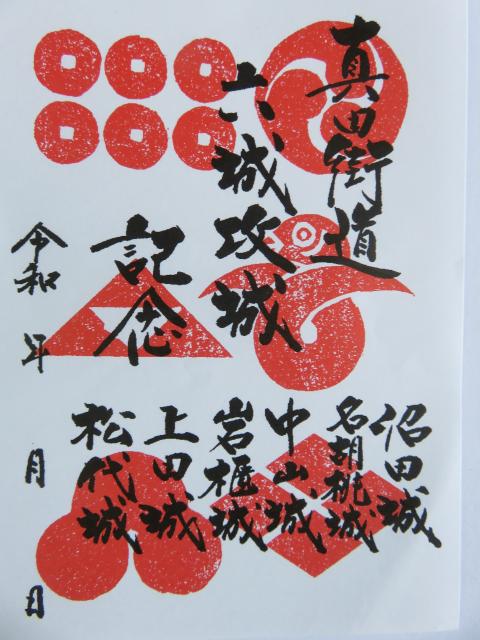 真田街道
六城攻城
記念
令和 年 月 日
沼田城
名胡桃城
中山城
岩櫃城
上田城
松代城